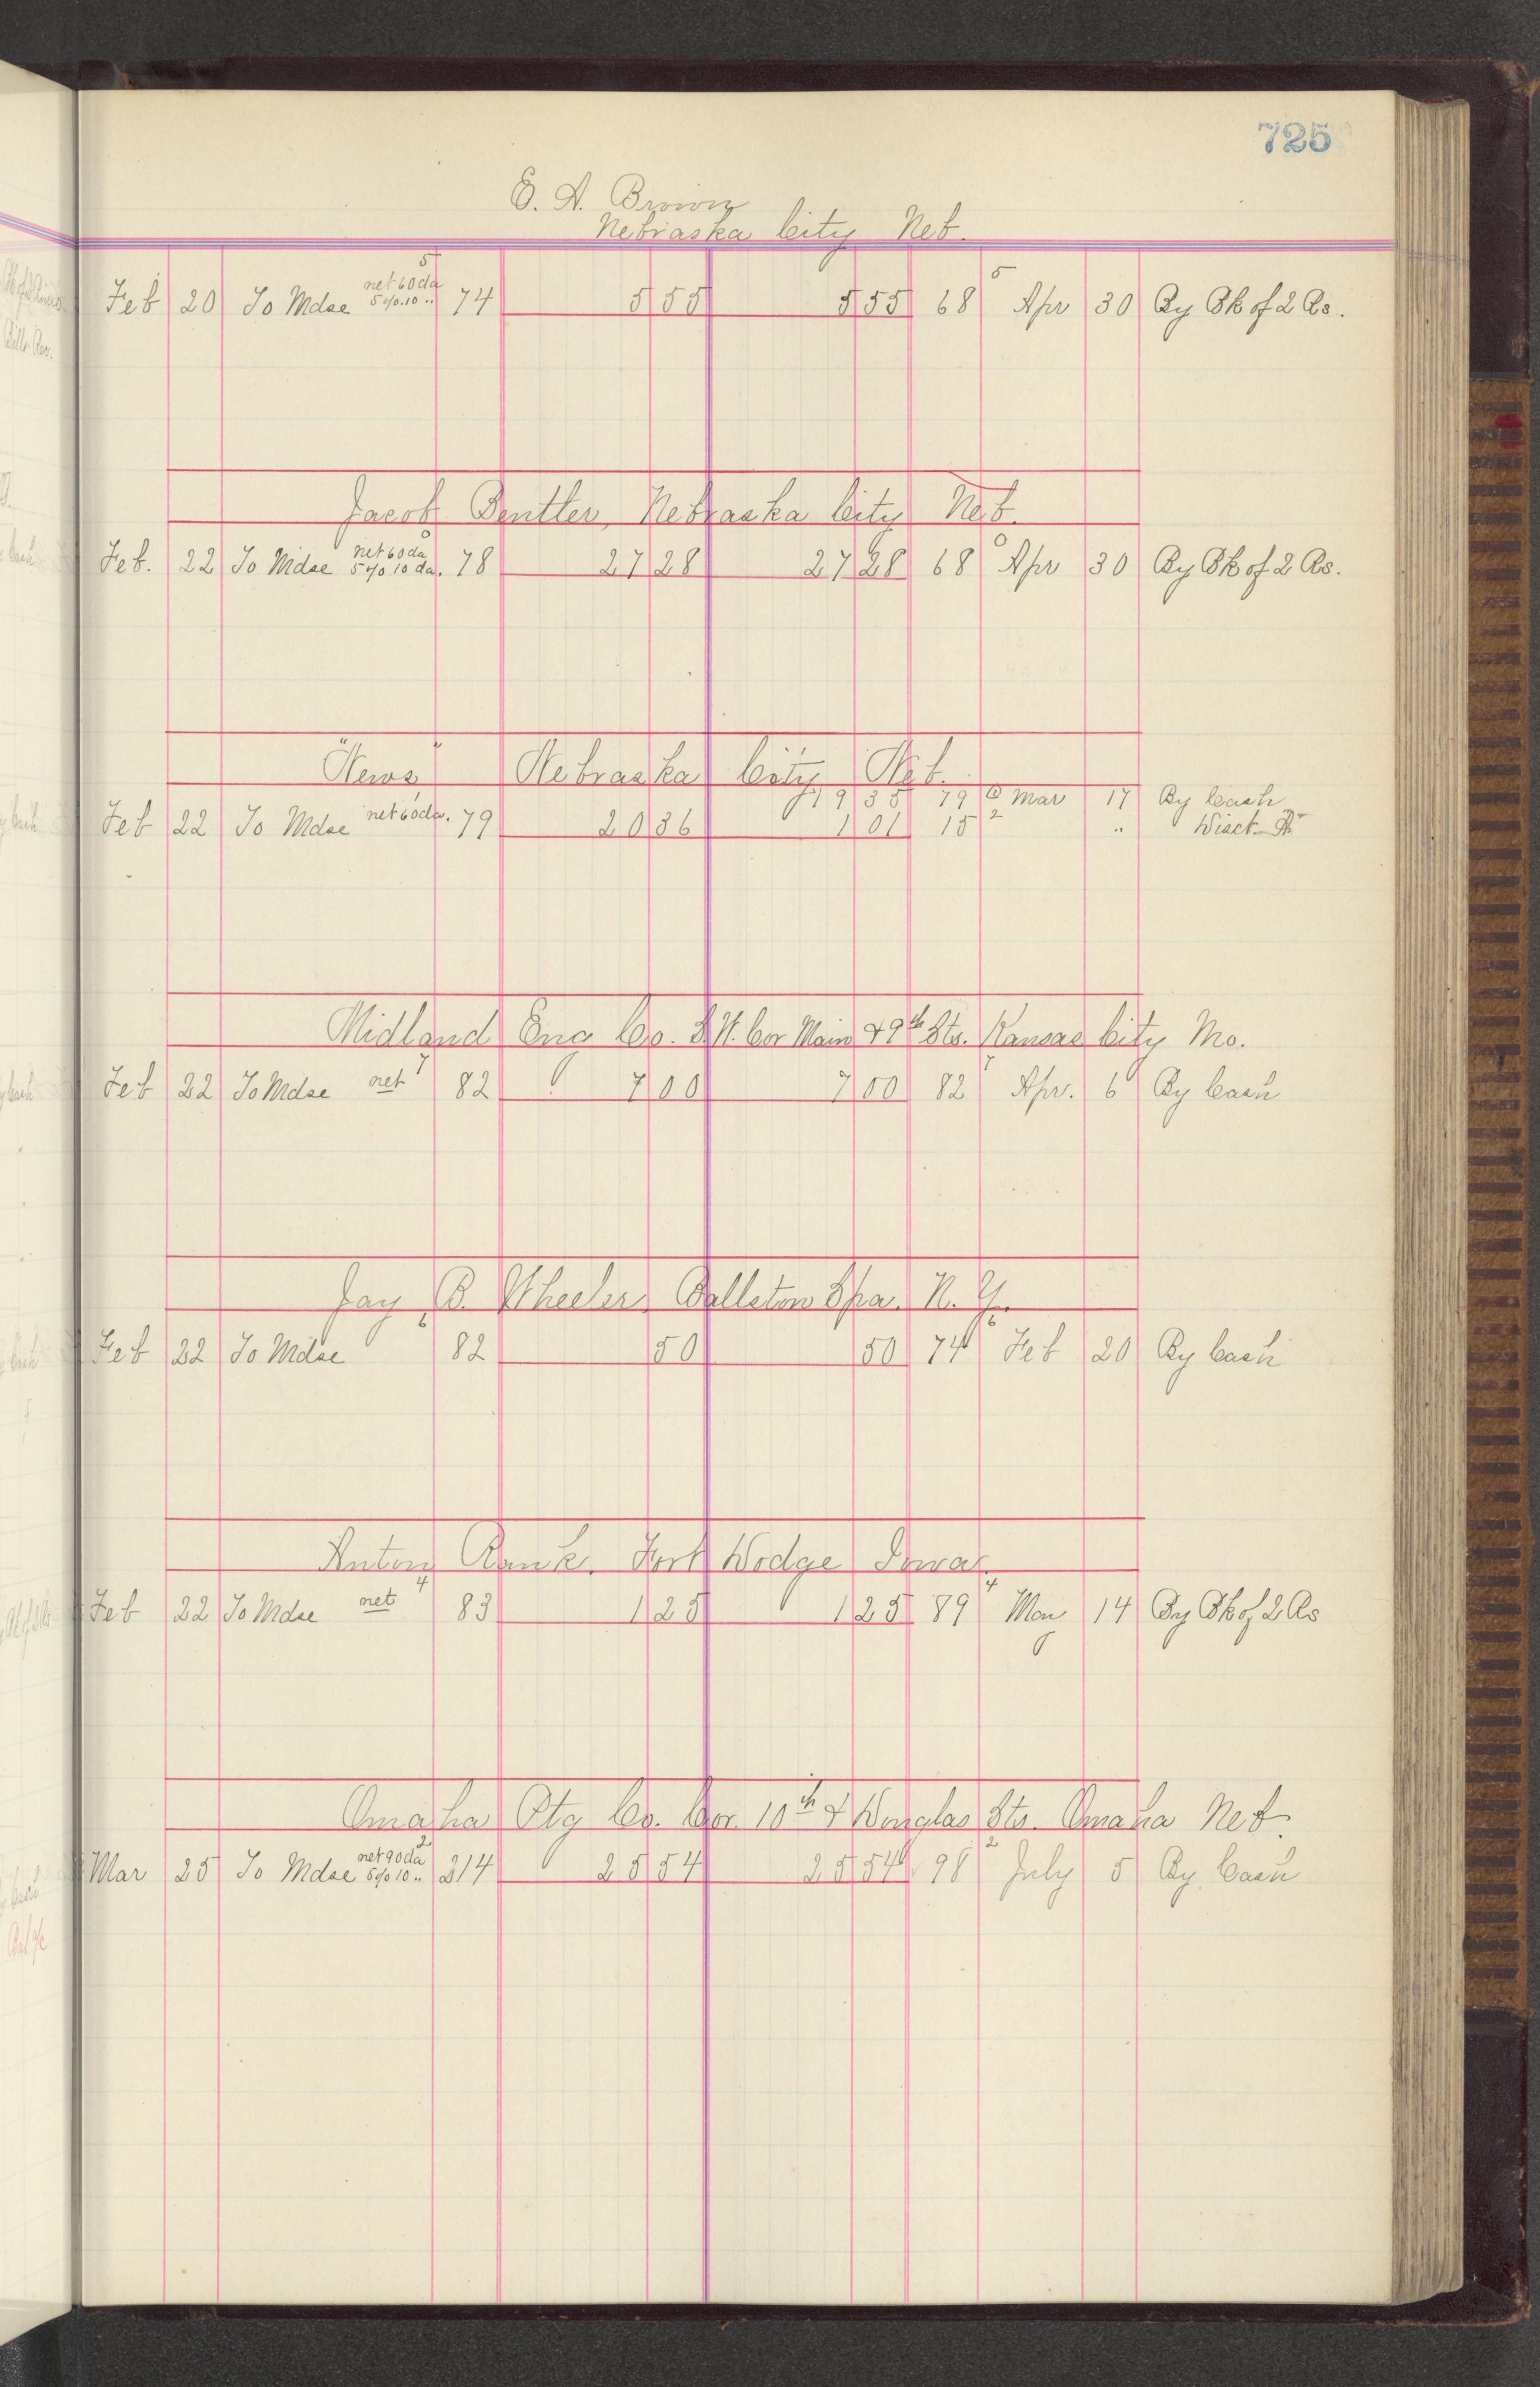 725
E. A. Brown
Nebraska City Neb.
Feb 20 To Mdse net 60 da 5% 10 .. 5 74 5 55 5 55 68 5 Apr 30 By Bk of 2 As.
Jacob Beutler, Nebraska City Neb.
Feb. 22 To Mdse net 60 da 5% 10 da. 0 78 27 28 27 28 68 0 Apr 30 By Bk of 2 As.
"News" Nebraska City Neb.
19 35 79 6 Mar 17 By Cash
Feb 22 To Mdse net 60 da. 79 20 36 1 01 15 2 .. Disct
Midland Eng Co. S.W. Cor Main & 9th Sts. Kansas City Mo.
Feb 22 To Mdse net 7 82 7 00 7 00 82 7 Apr. 6 By Cash
Jay B. Wheeler, Ballston Spa. N. Y.
Feb 22 To Mdse 6 82 50 50 74 6 Feb 20 By Cash
Anton Fort Dodge Iowa.
Feb 22 To Mdse net 4 83 1 25 1 25 89 4 May 14 By Bk of 2 As
Omaha Ptg Co. Cor. 10th & Douglas Sts. Omaha Neb.
Mar 25 To Mdse net 90 da 5% 10 .. 2 214 25 54 25 54 98 2 July 5 By Cash